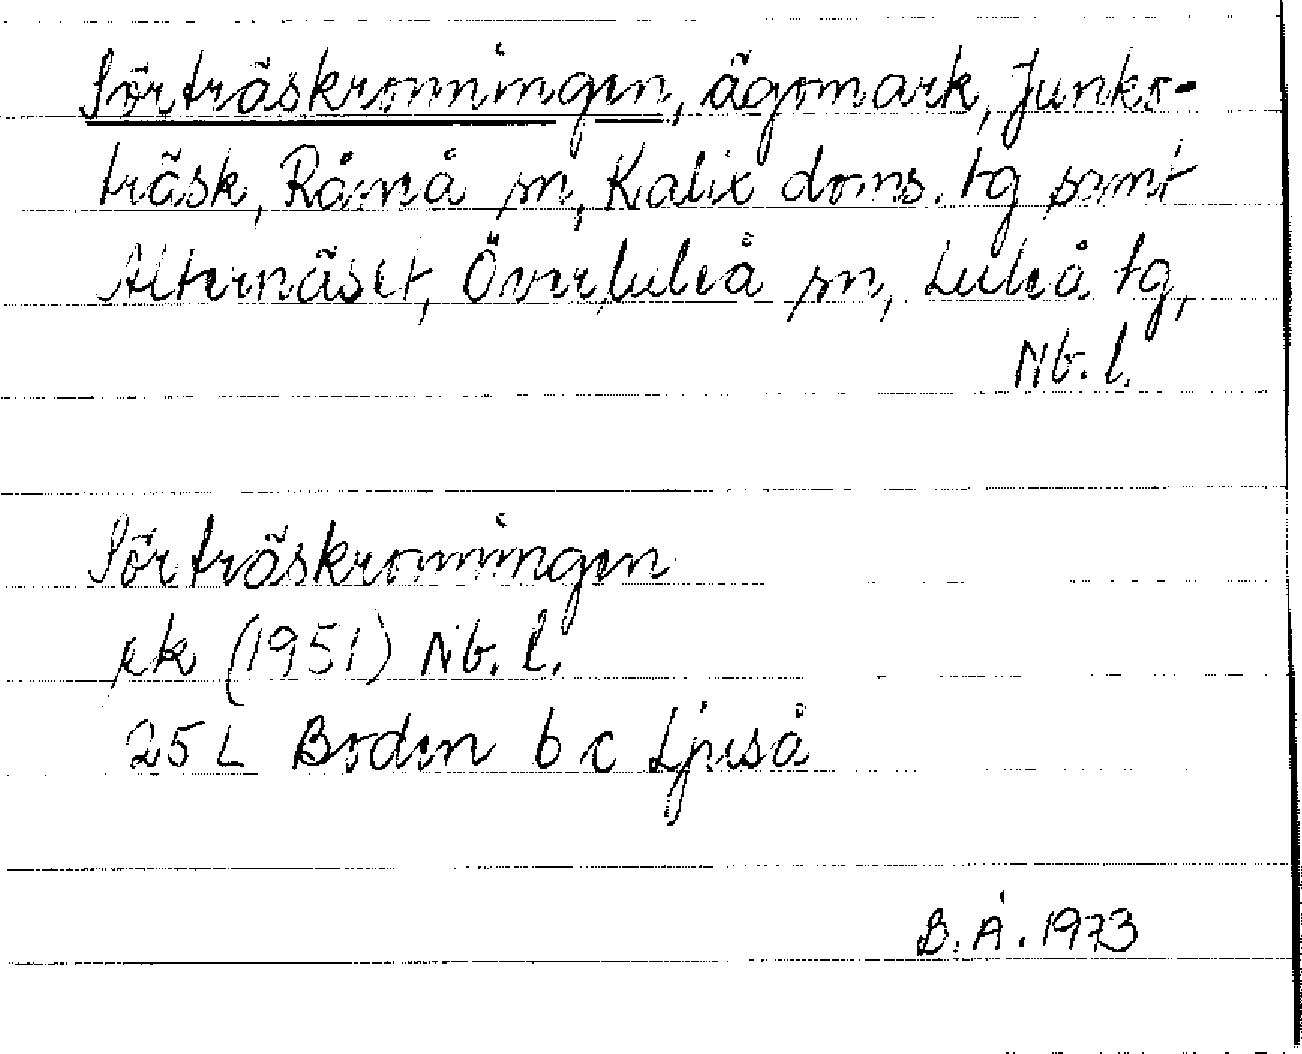 Sörträskronningen, ägomark, Junko-
träsk, Råneå sn, Kalix doms. tg samt
Alternäset, Överluleå sn, Luleå tg,
Nb. l.
Sörträskronningen
ek (1951) Nb. l.
25 L Boden b c Ljuså
B. Å. 1973